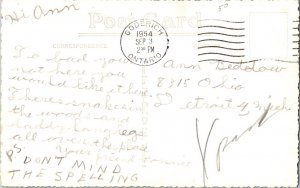 Hi Ann
Post Card
CORRESPONDENCE
GODERICH
1954
SEP 3
PM
ONTARIO
To bad your
not here you
would like it here.
Theres snakes in
the woods and
daddy long legs
all over the place
your friend
PS DONT MIND
THE SPELLING
Ann
8315 Ohio
Detroit 4 Mich